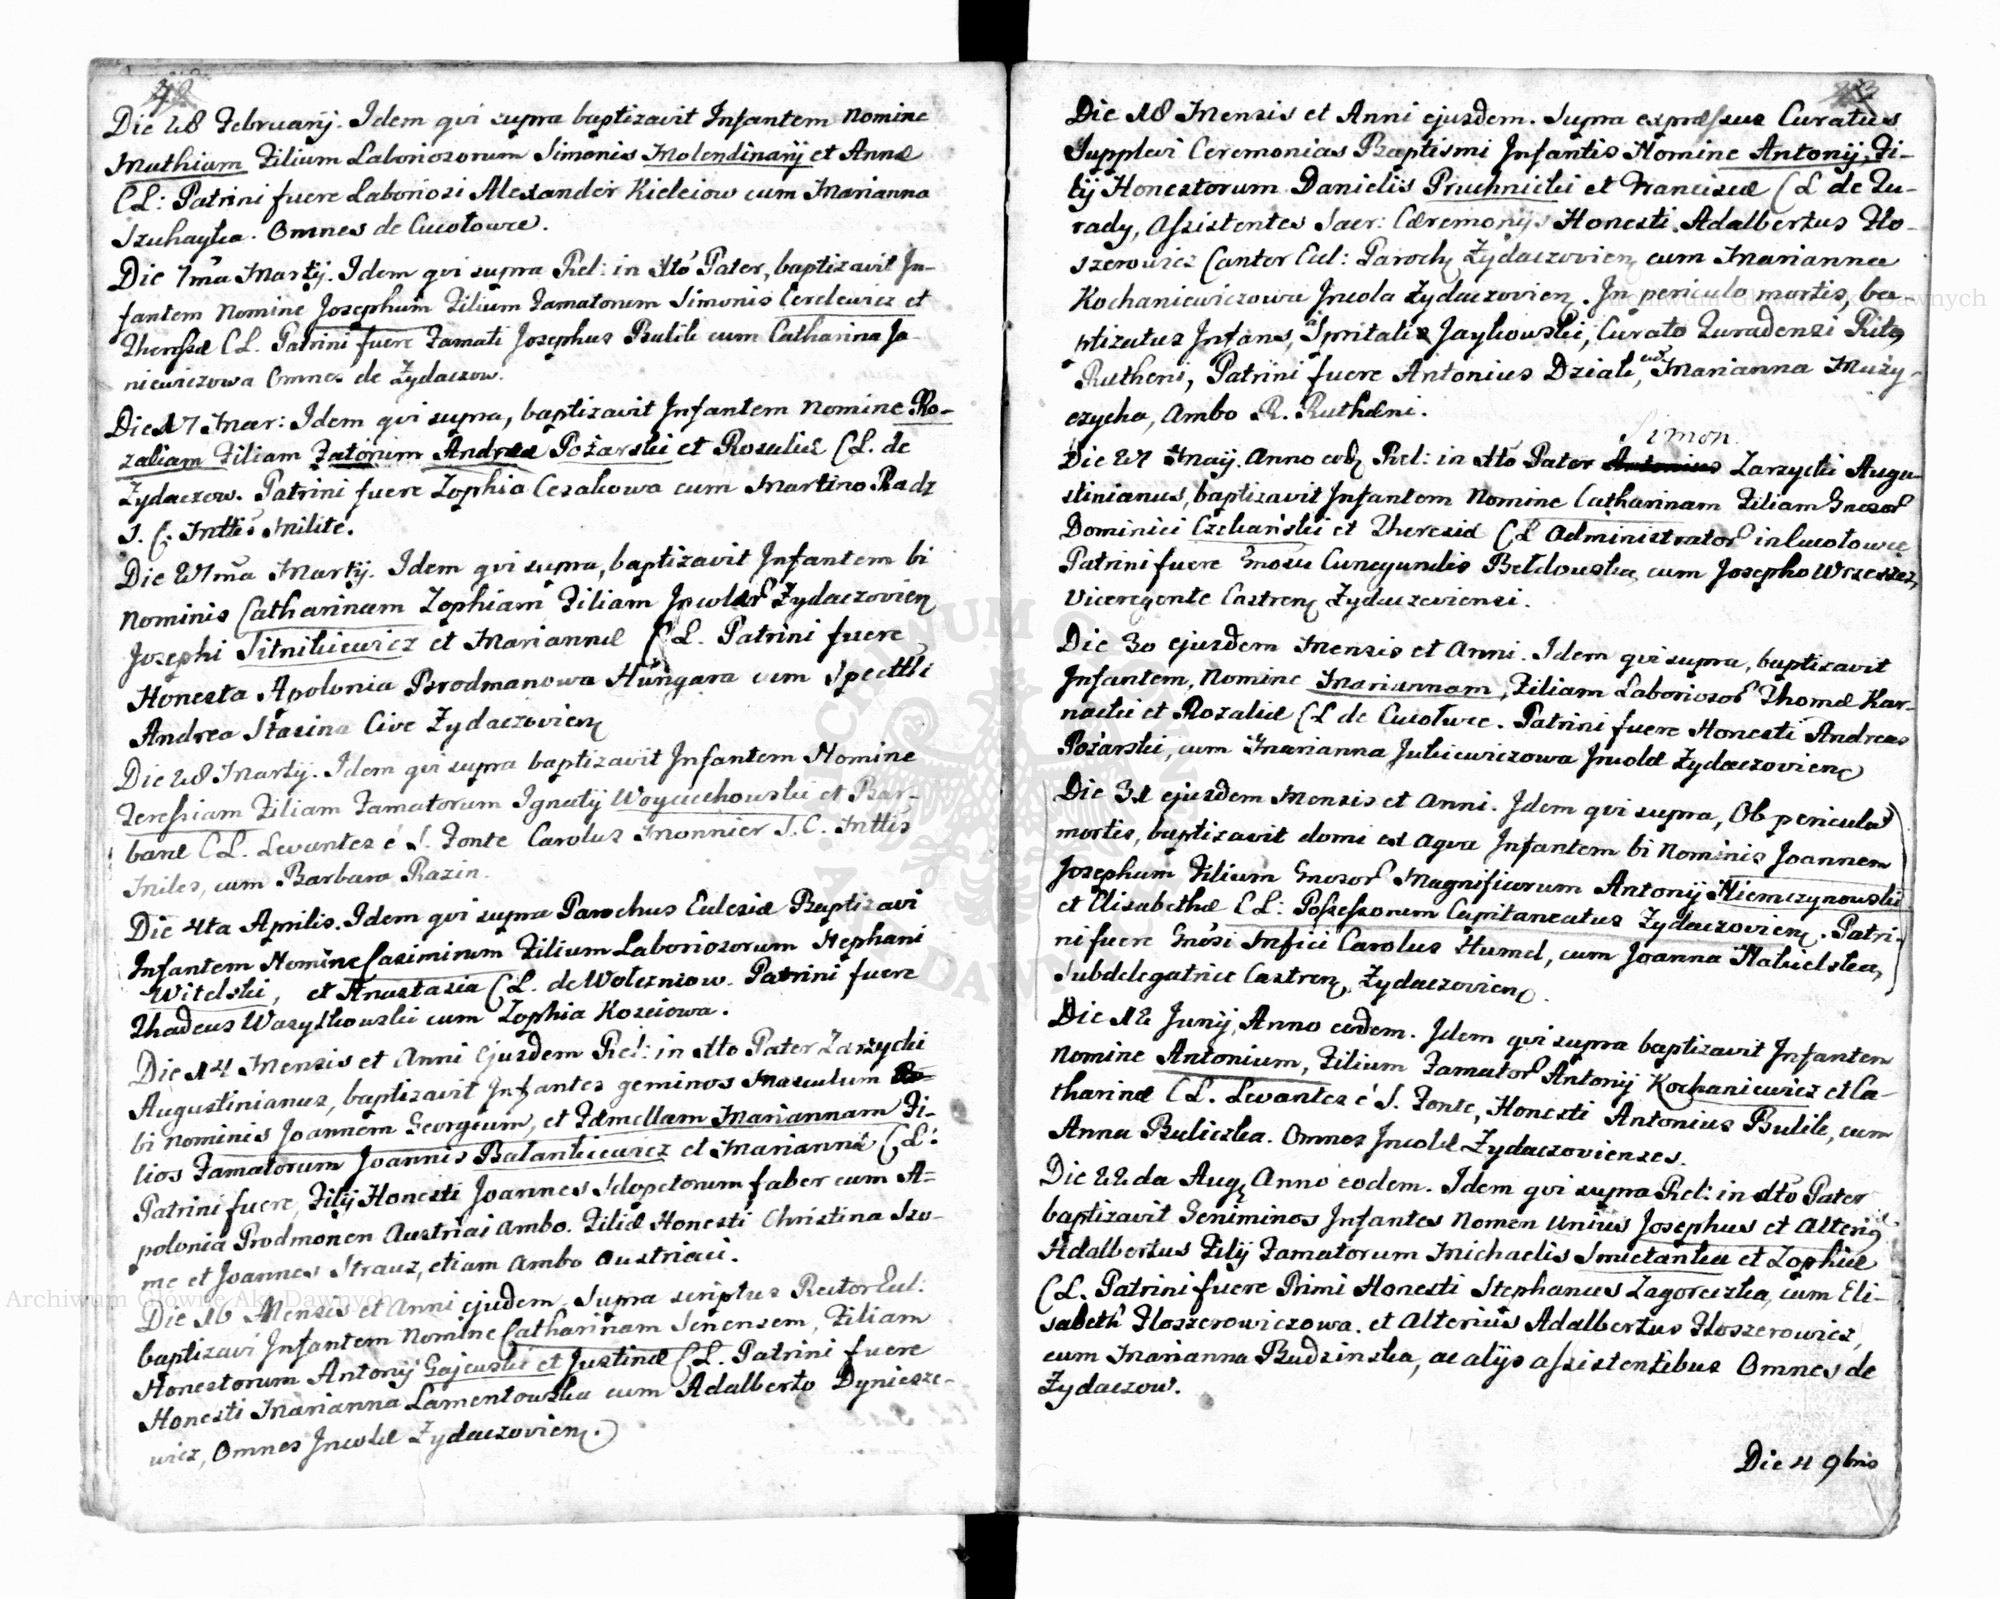 Die 28 Februarij. Idem qvi supra baptizavit Infantem Nomine
Mathiam Filium Laboriosorum Simonis Molendinarij et Annæ
CL: Patrini fuere Laboriosi Alexander Kieleiow cum Marianna
Szuhayka. Omnes de Cucołowce.
Die 7ma Martij. Idem qvi supra Rel: in Xto Pater, baptizavit In-
fantem Nomine Josephum Filium Famatorum Simonis Cerclewicz et
Theresæ CL. Patrini fuere Famati Josephus Bulik cum Catharina Ja-
niewiczowa Omnes de Zydaczow.
Die 17 Mar: Idem qvi supra, baptizavit Infantem Nomine Ro-
zaliam Filiam Fatorum Andreæ Pożarski et Rosaliæ CL. de
Zydaczow. Patrini fuere Zophia Cesakowa cum Martino Radz
S. C. Mttis Milite.
Die 21ma Martij. Idem qvi supra, baptizavit Infantem bi
Nominis Catharinam Zophiam Filiam Incolar Zydaczovien
Josephi Sitnikiewicz et Mariannæ CL. Patrini fuere
Honesta Apolonia Brodmanowa Hungara cum Specttbi
Andrea Stasina Cive Zydaczovien
Die 28 Martij. Idem qvi supra baptizavit Infantem Nomine
Teressiam Filiam Famatorum Ignatij Woyciechowski et Bar-
baræ CL. Levantes é S. Fonte Carolus Monnier S. C. Mttis
Miles, cum Barbara Razin.
Die 4ta Aprilis. Idem qvi supra Parochus Eclesiæ Baptizavi
Infantem Nomine Casimirum Filium Laboriosorum Stephani
Witelski, et Anastasia CL. de Wolczniow. Patrini fuere
Thadeus Wasylkowski cum Zophia Kosciowa.
Die 14 Mensis et Anni Ejusdem Rel: in Xto Pater Zarzycki
Augustinianus, baptizavit Infantes geminos Masculum
bi Nominis Joannem Georgium, et Fæmellam Mariannam Fi-
lios Famatorum Joannis Bałankiewicz et Mariannæ CL:
Patrini fuere, Filij Honesti Joannes Sclopetorum faber cum A-
polonia Prodmonen Austriai ambo. Filiæ Honesti Christina Szo-
me et Joannes Strauz, etiam Ambo Austriaci.
Die 16 Mensis et Anni ejusdem. Supra scriptus Rector Ecl:
baptizavi Infantem Nomine Catharinam Senensem, Filiam
Honestorum Antonij Gajewski et Justinæ CL. Patrini fuere
Honesti Marianna Lamentowska cum Adalberto Dyniesze-
wicz, Omnes Incolæ Zydaczovien.
Die 18 Mensis et Anni ejusdem. Supra expressus Curatus
Supplevi Ceremonias Baptismi Infantis Nomine Antonij, Fi-
lij Honestorum Danielis Pruchnicki et Franciscæ CL de Zu-
rady, Assistentes Sacr: Cæremonijs Honesti Adalbertus Flo-
szerowicz Cantor Ecl: Paroch Zydaczovien, cum Marianna
Kochaniewiczowa Incola Zydaczovien. In periculo mortis, ba-
ptizatus Infans, a Spritali Jaykowski, Curato Zuradensi Ritg
Rutheni, Patrini fuere Antonius Dziak, cum Marianna Muzy-
czycha, ambo R. Ruthæni.
Simon
Die 21 Maij. Anno eod. Rel: in Xto Pater Antonius Zarzycki Augu-
stinianus, baptizavit Infantem Nomine Catharinam Filiam Gnosor
Dominici Czekański et Theresiæ CL Administrator in Cucołowce
Patrini fuere Gnosa Cunegundis Bełdowska, cum Josepho Wrzeszcz,
Viceregente Castren Zydaczeviensi.
Die 30 ejusdem Mensis et Anni. Idem qvi supra, baptizavit
Infantem, Nomine Mariannam, Filiam Laboriosor Thomæ Kar-
nacki et Rozaliæ CL de Cucołwce. Patrini fuere Honesti Andreas
Pożarski, cum Marianna Jukiewiczowa Incolæ Zydaczovien
Die 31 ejusdem Mensis et Anni. Idem qvi supra, Ob pericula
mortis, baptizavit domi ex aqva Infantem bi Nominis Joannem
Josephum Filium Gnosor Magnificorum Antonij Niemczynowski
et Elisabethæ CL: Possessorum Capitaneatus Zydaczovien. Patri-
ni fuere Gnosi Mfici Carolus Humel, cum Joanna Nabielska,
Subdelegatrice Castren, Zydaczovien.
Die 12 Junij, Anno eodem. Idem qvi supra baptizavit Infantem
Nomine Antonium, Filium Famator Antonij Kochaniewicz et Ca-
tharinæ CL. Levantes é S. Fonte, Honesti Antonius Bulik, cum
Anna Buliczka. Omnes Incolæ Zydaczovienses.
Die 22da Aug, Anno eodem. Idem qvi supra Rel: in Xto Pater
baptizavit Geniminos Infantes Nomen Unius Josephus et Alterig
Adalbertus Filij Famatorum Michaelis Smietanka et Zophiæ
CL. Patrini fuere Primi Honesti Stephanus Zagoreczka, cum Eli-
sabeth Floszerowiczowa. et Alterius Adalbertus Floszerowicz,
cum Marianna Budzinska, ac alijs assistentibus Omnes de
Zydaczow.
Die 4 9bris
Archiwum Główne Akt Dawnych
Archiwum Główne Akt Dawnych